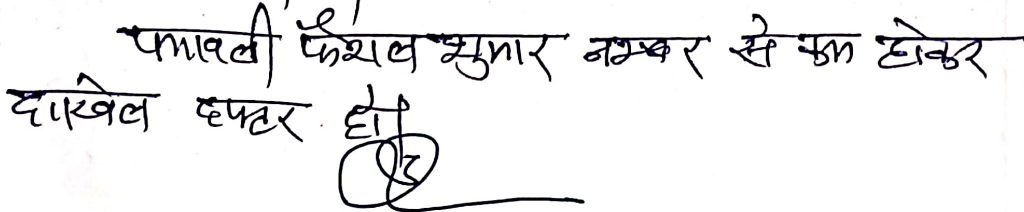 पत्रावली फैशल शुमार नम्बर से कम होकर
दाखिल दफ्तर हो।